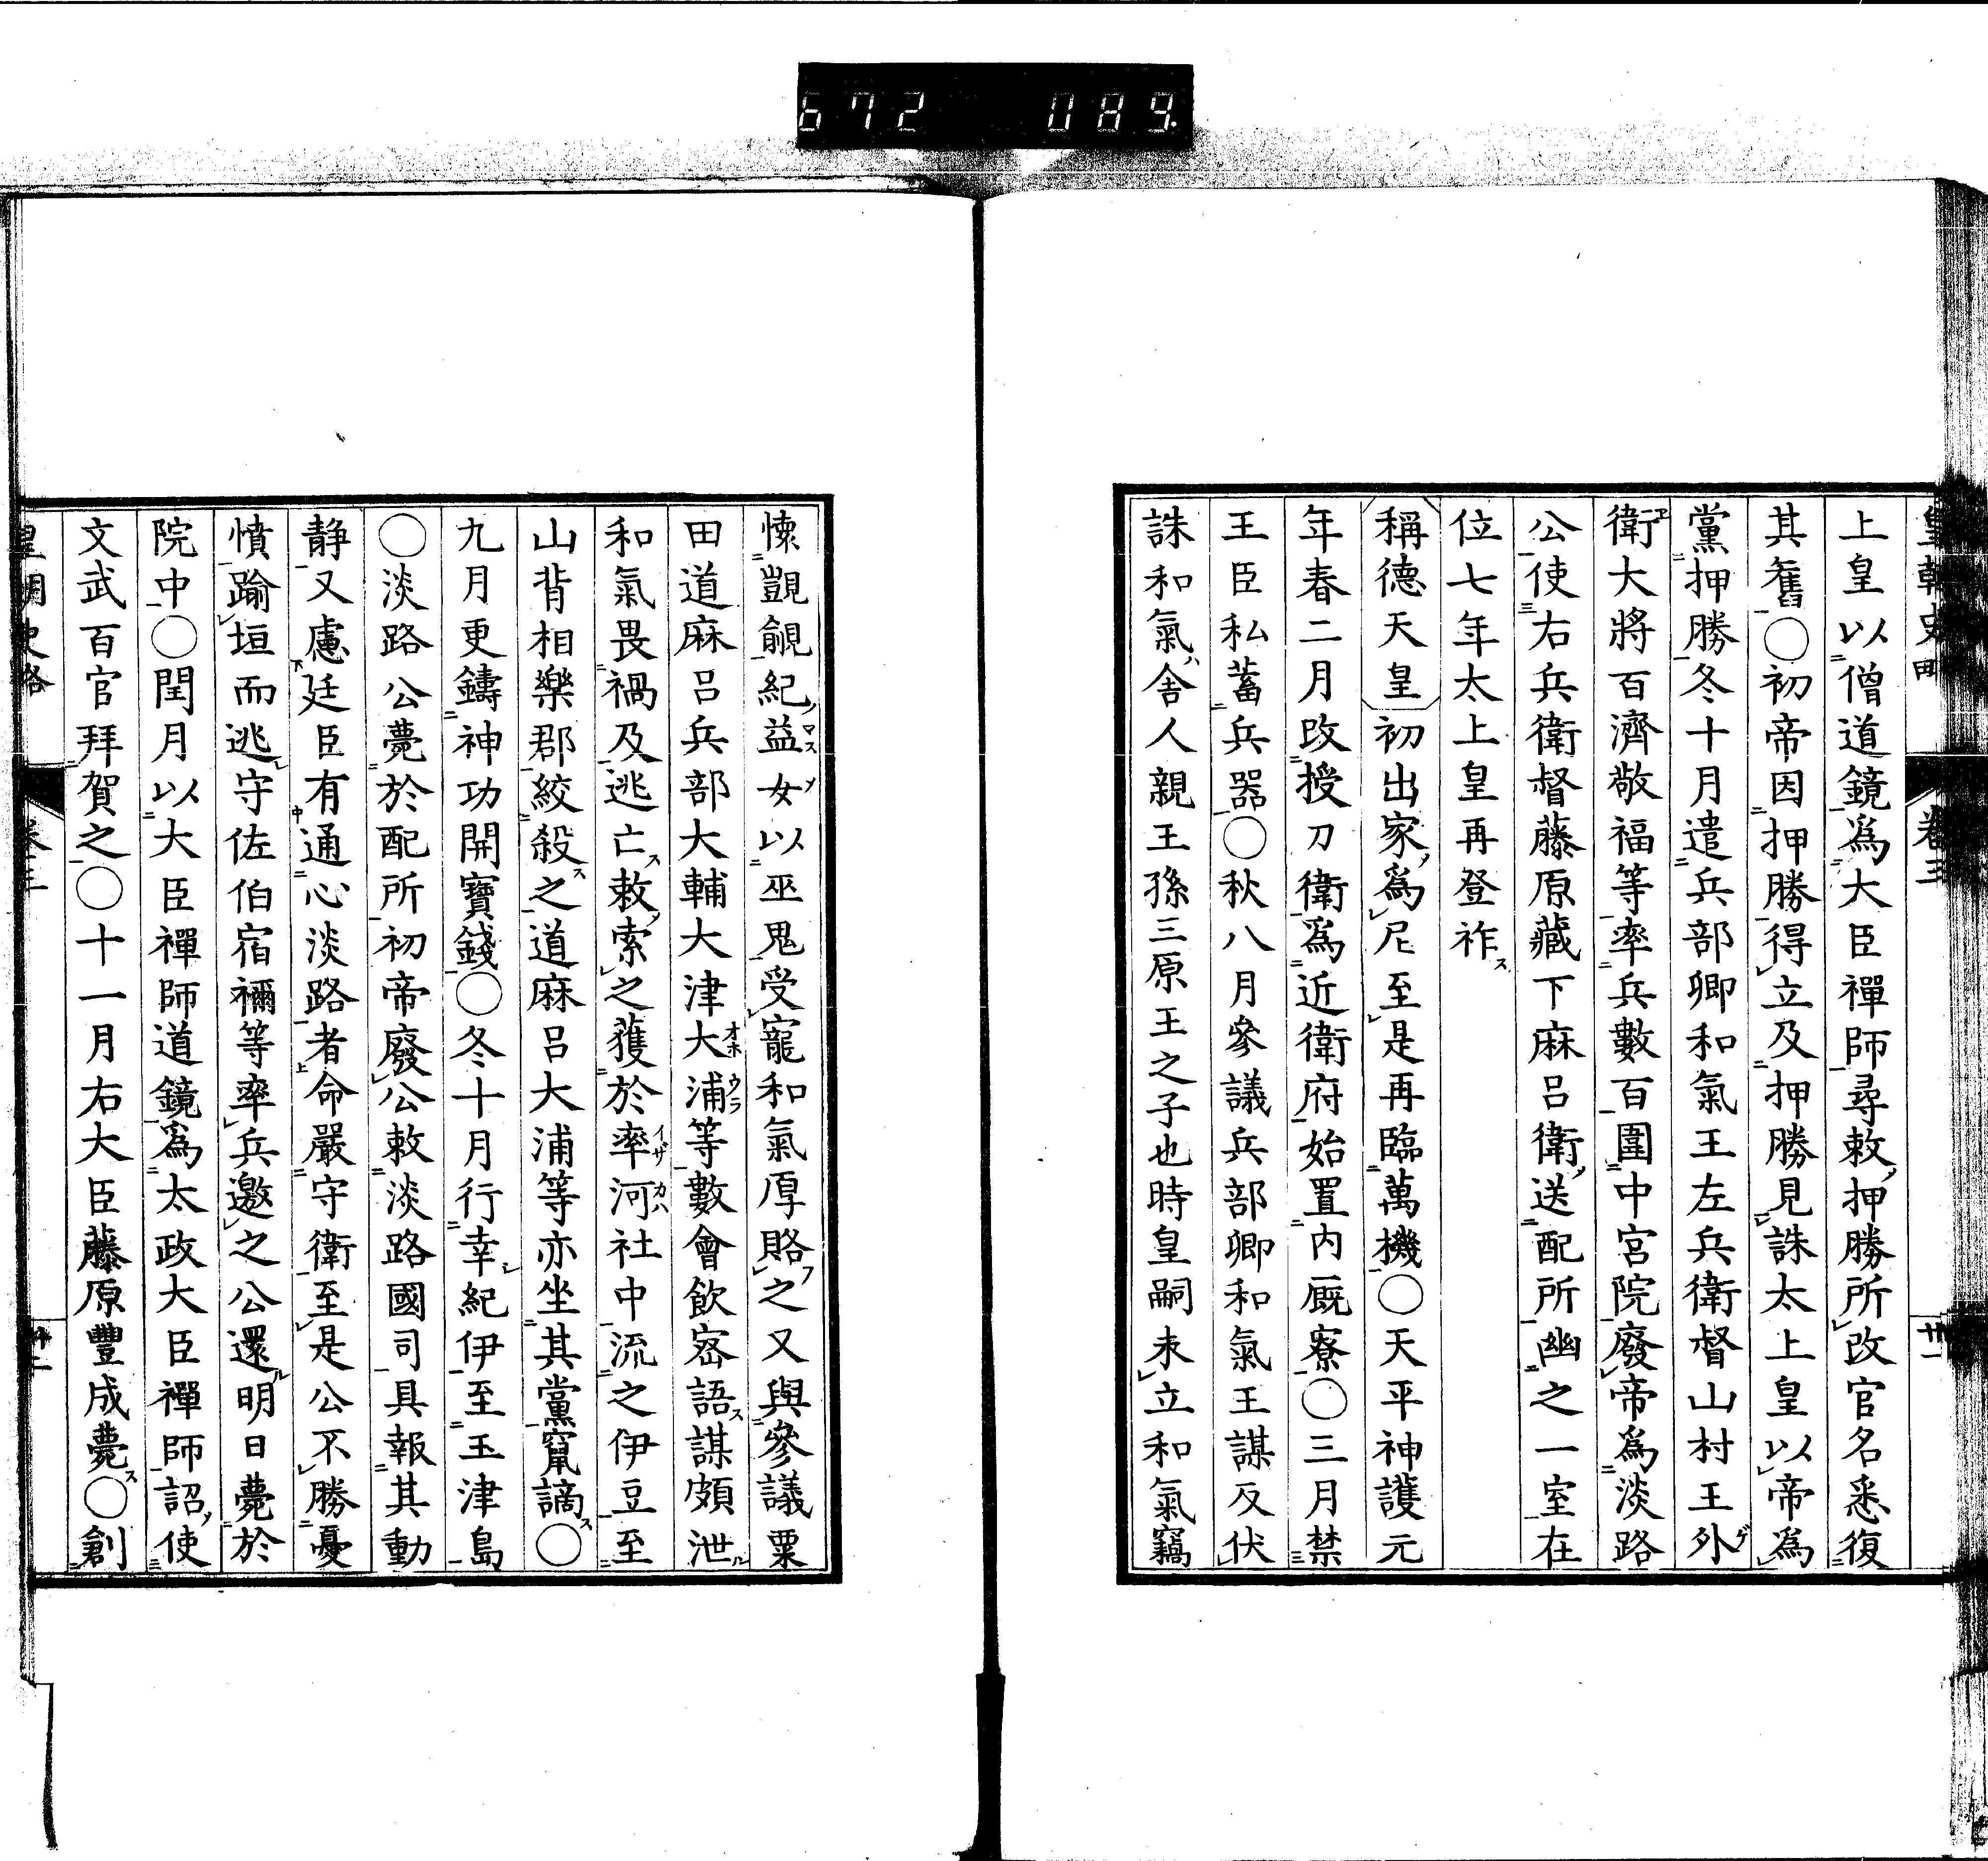 672 089
皇朝史略 卷三 廿一
上皇以僧道鏡爲大臣禪師尋敕押勝所改官名悉復
其舊○初帝因押勝得立及押勝見誅太上皇以帝爲
黨押勝冬十月遣兵部卿和氣王左兵衛督山村王外
衛大將百濟敬福等率兵數百圍中宮院廢帝爲淡路
公使右兵衛督藤原藏下麻呂衛送配所幽之一室在
位七年太上皇再登祚
稱德天皇初出家爲尼至是再臨萬機○天平神護元
年春二月改授刀衛爲近衛府始置内厩寮○三月禁
王臣私蓄兵器○秋八月參議兵部卿和氣王謀反伏
誅和氣舍人親王孫三原王之子也時皇嗣未立和氣竊
懷覬覦紀益女以巫鬼受寵和氣厚賂之又與參議粟
田道麻呂兵部大輔大津大浦等數會飲密語謀頗泄
和氣畏禍及逃亡敕索之獲於率河社中流之伊豆至
山背相樂郡絞殺之道麻呂大浦等亦坐其黨竄謫○
九月更鑄神功開寶錢○冬十月行幸紀伊至玉津島
○淡路公薨於配所初帝廢公敕淡路國司具報其動
静又慮廷臣有通心淡路者命嚴守衛至是公不勝憂
憤踰垣而逃守佐伯宿禰等率兵邀之公還明日薨於
院中○閏月以大臣禪師道鏡爲太政大臣禪師詔使
文武百官拜賀之○十一月右大臣藤原豐成薨○創
皇朝史略 卷三 廿二